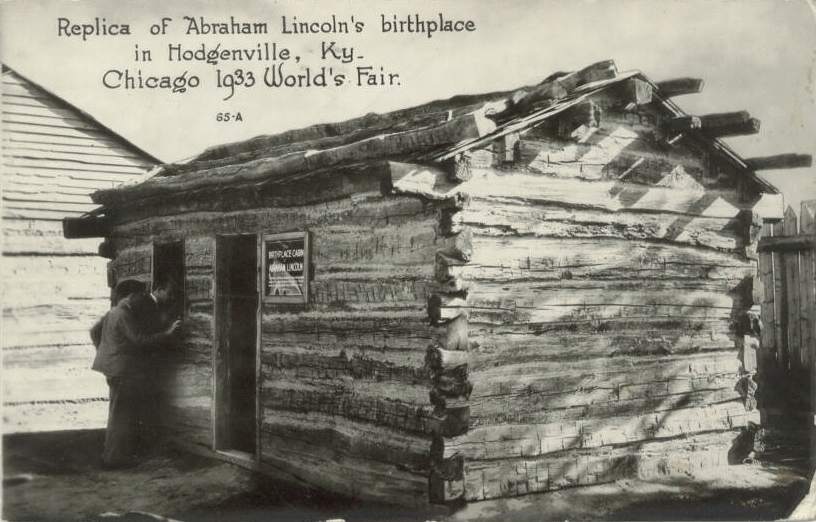 Replica of Abraham Lincoln's birthplace
in Hodgenville, Ky-
Chicago 1933 World's Fair.
65-A
BIRTHPLACE CABIN
ABRAHAM LINCOLN